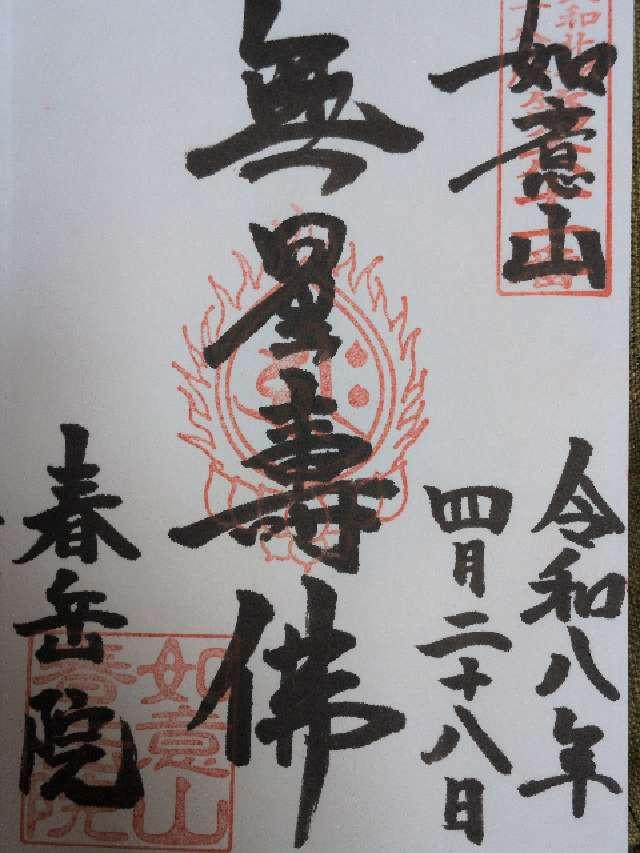 如意山
令和八年
四月二十八日
無量壽佛
春岳院
如意山
春岳院